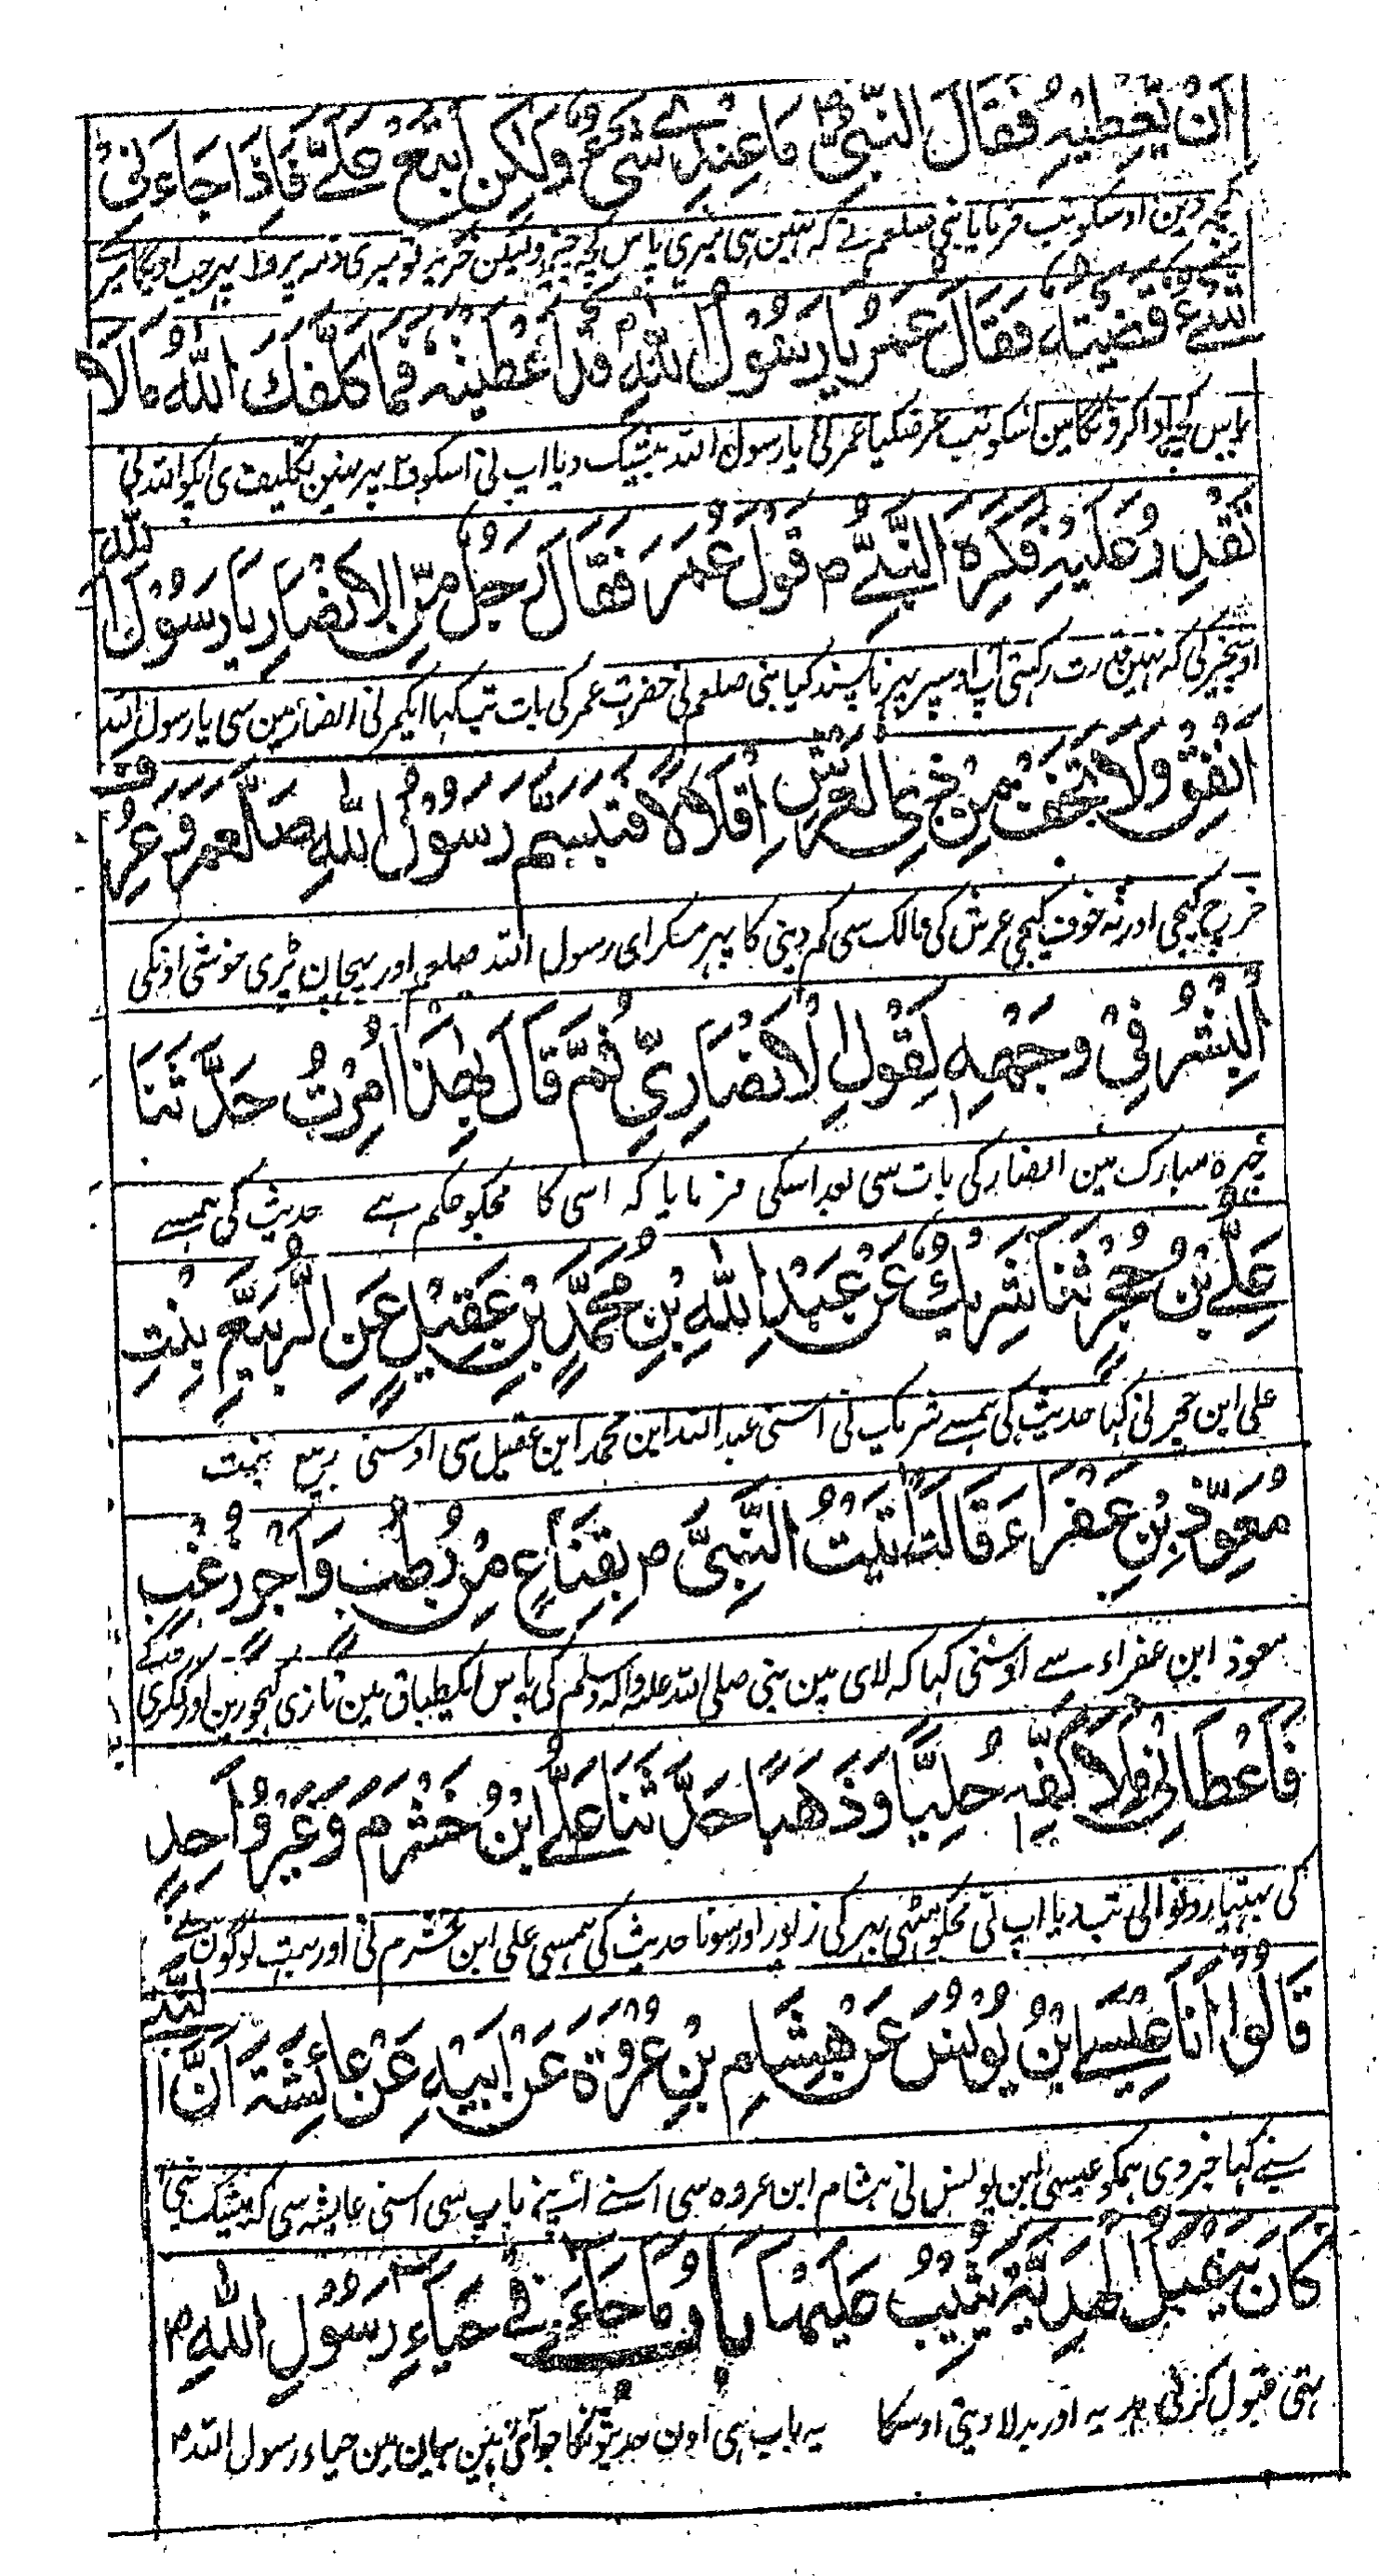 اَنْ يُعْطِيَهٗ فَقَالَ النَّبِيُّ ؐ مَا عِنْدِيْ شَيْءٌ وَلٰكِنِ ابْتَعْ عَلَيَّ فَاِذَا جَاءَنِيْ
کچہہ دین اوسکو تب فرمایا نبی صلعم نے کہ نہین ہی میری پاس کچہہ چیز ولیکن خرید تو میری ذمہ پر پہر جب اویگا میرے
شَيْءٌ قَضَيْتُهٗ فَقَالَ عُمَرُ يَا رَسُوْلَ اللّٰهِ قَدْ اَعْطَيْتَهٗ فَمَا كَلَّفَكَ اللّٰهُ مَا لَا
پاس کچہہ ادا کرونگا مین اسکو تب عرضکیا عمر نی یا رسول اللہ بیشک دیا اپ نی اسکو پہر نہین تکلیف دی اپکو اللہ نی
تَقْدِرُ عَلَيْهِ فَكَرِهَ النَّبِيُّ م قَوْلَ عُمَرَ فَقَالَ رَجُلٌ مِّنَ الْاَنْصَارِ يَا رَسُوْلَ اللّٰهِ
اوسچیز کی کہ نہین قدرت رکہتی آپ اوسپر پہر ناپسند کیا نبی صلعم نی حضرت عمر کی بات تب کہا ایکمرد نی انصار مین سی یا رسول اللہ
اَنْفِقْ وَلَا تَخَفْ مِنْ ذِي الْعَرْشِ اِقْلَالًا فَتَبَسَّمَ رَسُوْلُ اللّٰهِ صَلَّعَم وَعُرِفَ
خرچ کیجی اور نہ خوف کیجی عرش کی مالک سی کم دینی کا پہر مسکرای رسول اللہ صلعم اور پہچان پڑی خوشی اونکی
الْبِشْرُ فِيْ وَجْهِهٖ لِقَوْلِ الْاَنْصَارِيِّ ثُمَّ قَالَ بِهٰذَا اُمِرْتُ حَدَّثَنَا
چہرہ مبارک مین انصار کی بات سی بعد اسکی فرمایا کہ اسی کا مجکو حکم ہے حدیث کی ہمسے
عَلِيُّ بْنُ حُجْرٍ ثَنَا شَرِيْكٌ عَنْ عَبْدِ اللّٰهِ بْنِ مُحَمَّدِ بْنِ عَقِيْلٍ عَنِ الرُّبَيِّعِ بِنْتِ
علی ابن حجر نی کہا حدیث کی ہمسے شریک نی اسنی عبد اللہ ابن محمد ابن عقیل سی اوسنی ربیع بنت
مُعَوِّذِ بْنِ عَفْرَاءَ قَالَتْ اَتَيْتُ النَّبِيَّ م بِقِنَاعٍ مِنْ رُطَبٍ وَاَجْرٍ زُغْبٍ
معوذ ابن عفراء سے اوسنی کہا کہ لای مین نبی صلی اللہ علیہ واٰلہ وسلم کی پاس ایکطباق مین تازی کہجورین اور ککری
فَاَعْطَانِيْ مِلْأَ كَفِّهٖ حُلِيًّا وَذَهَبًا حَدَّثَنَا عَلِيُّ ابْنُ خَشْرَمَ وَغَيْرُ وَاحِدٍ
کی تب دیا اپ نی مجکو مٹہی بہر کی زیور اور سونا حدیث کی ہمسی علی ابن خشرم نی اور بہت لوگون نے
قَالُوْا اَنَا عِيْسَى ابْنُ يُوْنُسَ عَنْ هِشَامِ بْنِ عُرْوَةَ عَنْ اَبِيْهِ عَنْ عَائِشَةَ اَنَّ النَّبِيَّ
سبنے کہا خبر دی ہمکو عیسی ابن یونس نی ہشام ابن عروہ سی اسنے اپنے باپ سی اسنی عایشہ سی کہ بیشک نبی
كَانَ يَقْبَلُ الْهَدِيَّةَ وَيُثِيْبُ عَلَيْهَا بَابُ مَا جَاءَ فِيْ حَيَاءِ رَسُوْلِ اللّٰهِ م
تہی قبول کرتی ہدیہ اور بدلا دیتی اوسکا یہ باب ہی اون حدیثونکا جو آئی ہین بیان مین حیاء رسول اللہ م